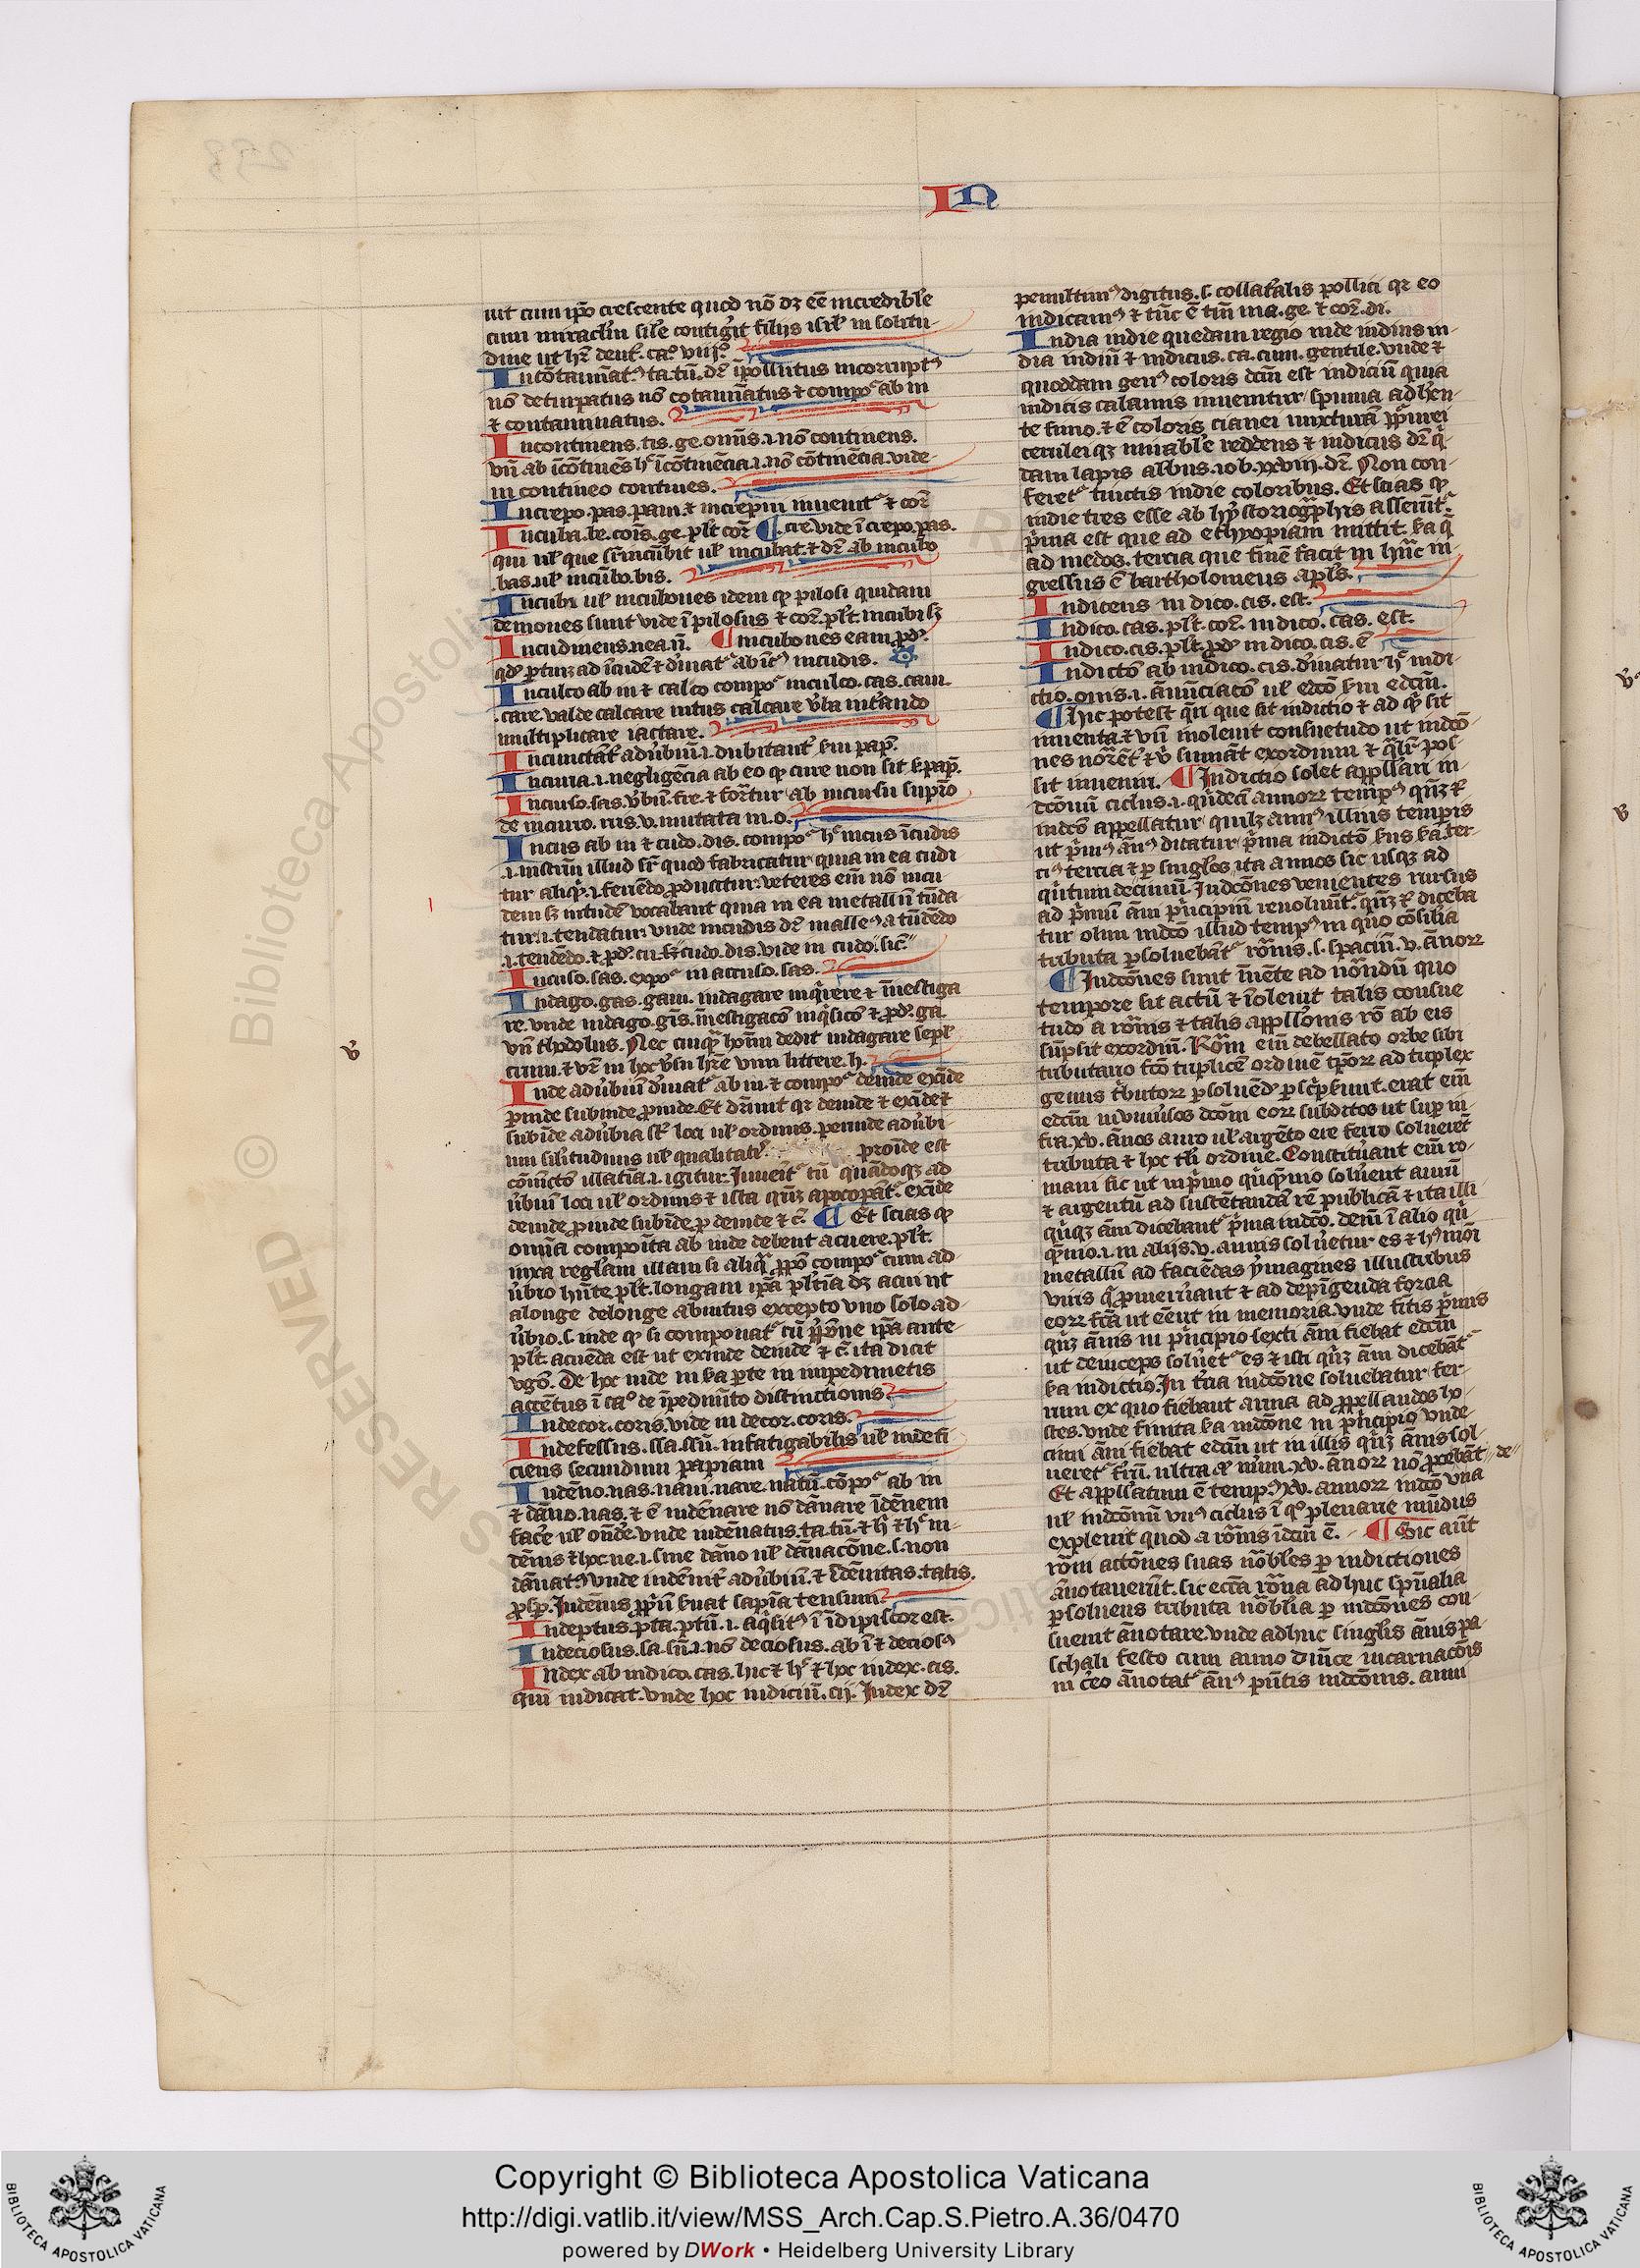 In
uit cum ipo crescente quod nō dꝫ eē incredible
cum miraclm sile contigit filijs isrl in solitu-
dine ut hr̄ deut. cao viijo.
Incōtaminatꝰ ta. tū. dr̄ ipollutus incorruptꝰ
nō deturpatus nō cotaminatus ⁊ compo ab in
⁊ contaminatus.
Incontinens. tis. ge. omīs. i. nō continens.
vn̄ ab icōtines hc icōtinēcia. i. nō cōtinēcia. vide
in contineo contines.
Increpo. pas. pam. ⁊ increpin inuenit ⁊ cor̄
Incuba. be. cois. ge. plt cor̄ ¶ cre vide i crepo. pas.
qui ul que sr̄ incūbit ul incubat. ⁊ dr̄ ab incubo
.bas. ul incūbo. bis.
Incubi ul incubones idem qꝫ pilosi quidam
demones sunt vide i pilosus ⁊ cor̄. plt. incubi sꝫ
Incudineus. nea. ū. ¶ incubones eam. pdꝰ.
Inculco ab in ⁊ calco compo inculco. cas. caui.
.care. valde calcare intus calcare vba intrando
multiplicare iactare.
Incuria. i. negligēcia ab eo qꝫ cure non sit s. pap̄.
de incurro. ris. v. mutata in. o.
Incus ab in ⁊ cudo. dis. compo hc incus icudis
.i. instrm illud sr̄ quod fabricatur quia in ea cudi
tur aliqd. i. feriēdo producitur. veteres em nō incu
dem sꝫ intudē vocabant quia in ea metallū tūda
tur. i. tendatur. vnde incudis dr̄ malleꝰ a tūdēdo
Inculso. sas. expo in acculso. sas.
Indago. gas. gaui. indagare inqirere ⁊ inuestiga
re. vnde indago. gis. inuestigacō inqsicō ⁊ pdr. ga
vn̄ thodolus. Nec cuiqꝫ hoīm dedit indagare sepl
crum. ⁊ vr̄ in hoc vsu hr̄e vim littere. h.
Inde adubiū diuat ab in. ⁊ compo deinde exīde
perinde subinde proinde. Et dr̄nit qr deinde ⁊ exīde ⁊
subide adubia st loci ul ordinis. perinde adubi-
um silitudinis ul qualitatis. proide est
ubiū loci ul ordinis ⁊ ista qnꝫ apocopāt. exīde
deinde proinde subide. p deinde ⁊ c. ¶ Et scias qꝫ
omīa composita ab inde debent acuere. plt.
iuxa reglam illam si aliq ppō compo cum ad
ubio hn̄te plt. longam ipa pltia dꝫ acui ut
alonge delonge abintus excepto vno solo ad
ubio. s. inde qꝫ si componat cū ppōne ipa ante-
plt. acuēda est ut exinde deinde ⁊ c ita dicit
vgo. De hoc inde in s̄a pte in impedimētis
accētus i cao de ipedimito distinctionis
Indecor. coris. vide in decor. coris.
Indefessus. ssa. ssū. infatigabilis ul indefi
ciens secundum papiam
Indēno. nas. naui. nare. natū. cōpo ab in
⁊ dāno. nas. ⁊ ē indēnare nō dānare idēnem
facē ul ondē. vnde indēnatus. ta. tū. ⁊ h ⁊ hc in-
dēnis ⁊ hoc ne. i. sine dāno ul dānacōne. s. non
dānatꝰ vnde indēnit adubiū. ⁊ idēnitas. tatis.
Indeptus. pta. ptū. i. aqsitꝰ i idipiscor est.
Indeciosus. sa. sū. i. nō deciosus. ab i ⁊ deciosꝰ
Index ab indico. cas. hic ⁊ hc ⁊ hoc index. cis.
qui indicat. vnde hoc indiciū. cij. Index dr̄
penultimꝰ digitus. s. collatalis pollici qr eo
indicamꝰ ⁊ tūc ē tm̄ ma. ge. ⁊ cor̄. di.
India indie quedam regio inde indius in-
dia indiū ⁊ indicus. ca. cum. gentile. vnde ⁊
quoddam genꝰ coloris dcm̄ est indiciū quia
indicis calamis inuenitur spuma adhen-
te fimo. ⁊ ē coloris cianei mixturā ppurei
ceruleiqꝫ mirable reddens ⁊ indicus dr̄ q
dam lapis albus. iob. xxviij. dr̄. Non con-
feret tinctis indie coloribus. Et scias qꝫ
indie tres esse ab hystoriogphis asserūt.
pma est que ad ethyopiam mittit. s̄a q
ad medos. tercia que finē facit in hāc in-
gressus ē bartholomeus apls.
Indicens in dico. cis. est.
Indico. cas. plt. cor̄. in dico. cas. est.
Indico. cis. plt. pd in dico. cis. ē
Indictō ab indico. cis. diuatur hc indi-
ctio. onis. i. ānunciacō ul edcō s̄m edcm̄.
¶ hic potest qri que sit indictio ⁊ ad qd sit
inuenta. ⁊ vn̄ inoleuit consuetudo ut indcō-
sit inueniri. ¶ Indictio solet appllari in-
dcōnū ciclus. i. qndeci annorꝝ tempꝰ qnꝫ ⁊
indcō appellatur quilꝫ annꝰ illius tempis
ut pmꝰ ānꝰ dicatur pma indictō s̄us s̄a ter
ciꝰ tercia ⁊ p singlos ita annos sic usqꝫ ad
qntum decimū. Indcōnes venientes rursus
ad pmū ām pncipiū reuoluūt. qnꝫ ⁊ diceba
tur olim indcō illud tempꝰ in quo cōsilia
tributa psoluebāt romis. s. spaciū. v. ānorꝝ
¶ Indcōnes sunt inuēte ad nōndū quo
tempore sit actū ⁊ inoleuit talis consue
tudo a romis ⁊ talis appllonis rō ab eis
sūpsit exordiū. Rom̄ em debellato orbe sibi
tributario fcō triplicē ordinē tporꝝ ad triplex
genus tbutorꝝ psoluēd pscpserunt. erat em
edcm̄ vniuusos dcōm eorꝝ subditos ut sup in-
fra. xv. ānos auro ul argēto ere ferro soluerēt
tributa ⁊ hoc tli ordine. Constituāt em ro-
mani sic ut inpmo qnqnnio soluerent aurū
⁊ argentū ad sustētandā rē publicā ⁊ ita illi
qnqꝫ ām dicebant pma indcō. deīn i alio qn
qnnio. i. in alijs. v. annis soluetur es ⁊ hꝰmōi
metallū ad faciēdas ymagines illustribus
viris q pmeruerant ⁊ ad depigenda forcia
eorꝝ fca ut eēnt in memoria. vnde finitis pmis
qnꝫ ānis in pncipio sexti ām fiebat edcm̄
ut deinceps soluet es ⁊ isti qnꝫ ām dicebāt
s̄a indictio. In tcia indcōne soluebatur fer-
rum ex quo fiebant arma ad ppellandos ho-
stes. vnde finita s̄a indcōne in pncipio vnde-
cimi ām fiebat edcm̄ ut in illis qnꝫ ānis sol-
ueret ferrū. ultra qꝫ nūm. xv. ānorꝝ nō pcebāt de
Et appllatum ē tempꝰ xv. annorꝝ indcō vna
ul indcōnū vnꝰ ciclus i qo plenarie mūdus
expleuit quod a romis idcm̄ ē. ¶ Sic aūt
rom̄ actōnes suas nobiles p indictiones
ānotauerūt. sic ecca roma adhuc spūalia
psoluens tributa nobilia p indcōnes con-
sueuit ānotare. vnde adhuc singlis ānis pa-
schali festo cum anno dnice incarnacōis
in ceo ānotat ānꝰ pntis indcōnis. anni
Copyright © Biblioteca Apostolica Vaticana
http://digi.vatlib.it/view/MSS_Arch.Cap.S.Pietro.A.36/0470
powered by DWork • Heidelberg University Library
BIBLIOTECA APOSTOLICA VATICANA
BIBLIOTECA APOSTOLICA VATICANA